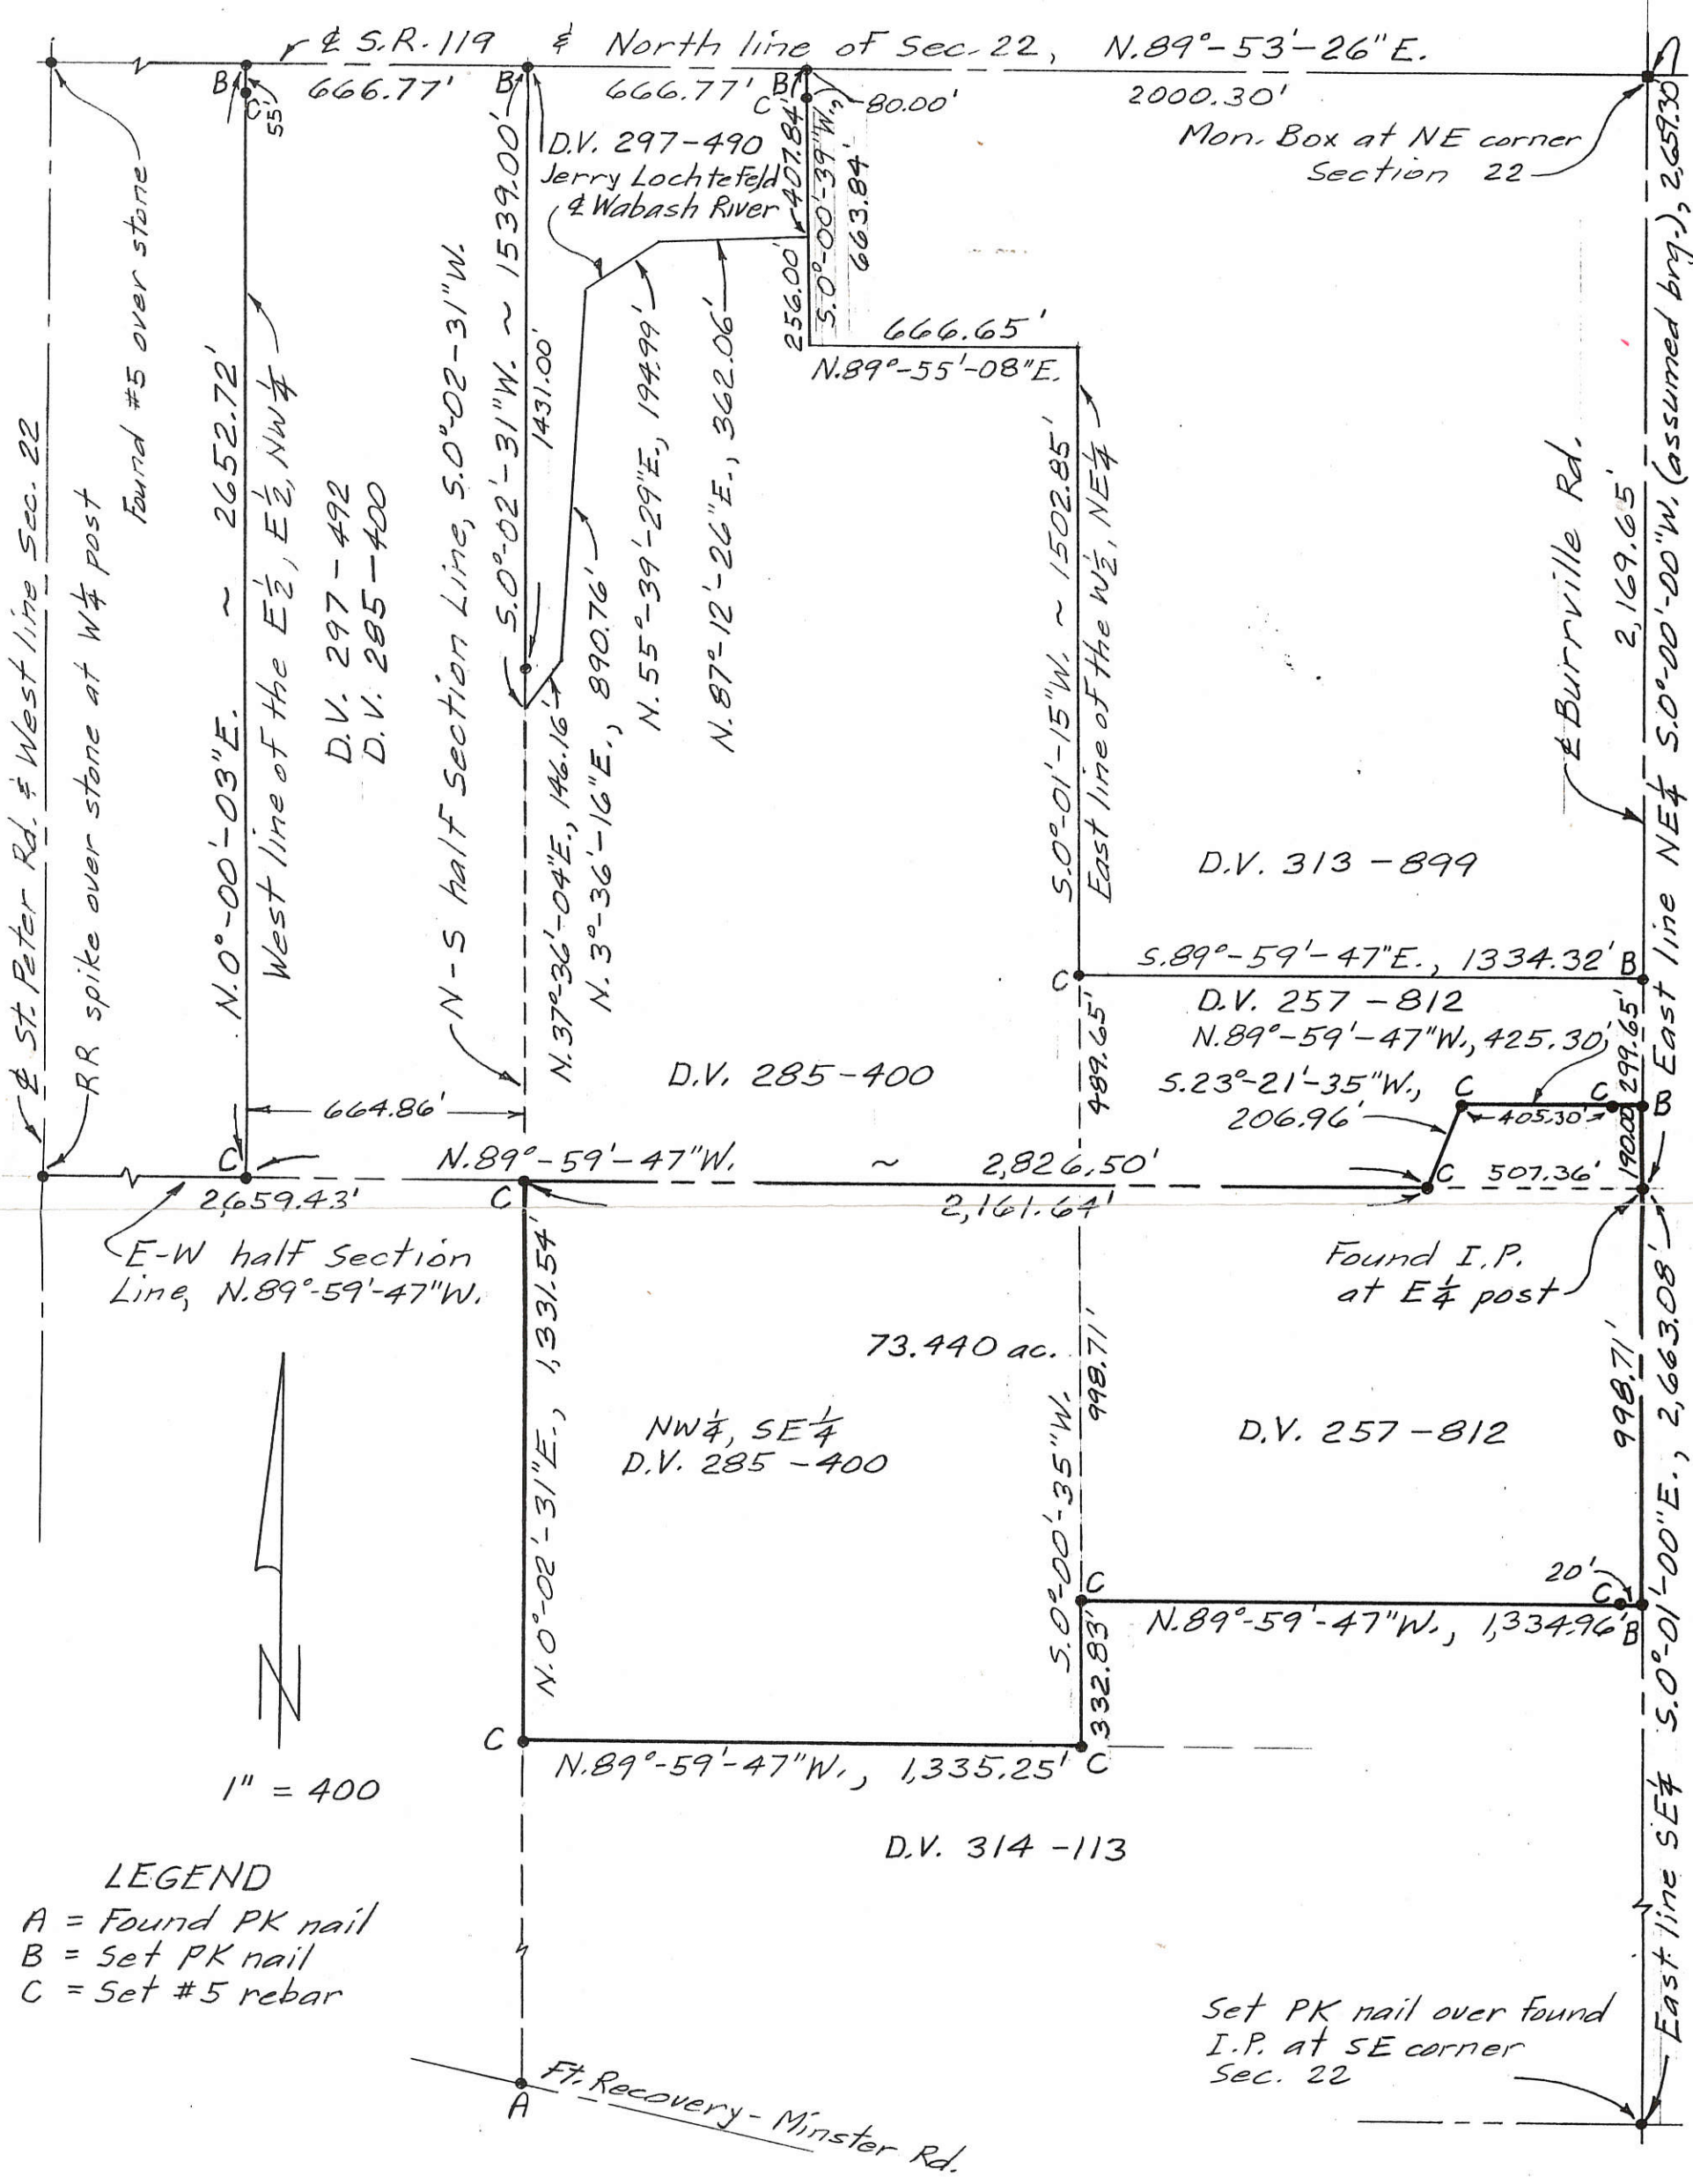 ℄ S.R. 119 & North line of Sec. 22, N.89°-53'-26"E.
B 666.77' B 666.77' B 80.00' 2000.30'
C 55'
C
Mon. Box at NE corner
Section 22
D.V. 297-490
Jerry Lochtefeld
℄ Wabash River
407.84'
S.0°-00'-39"W.,
663.84'
256.00'
666.65'
N.89°-55'-08"E.
℄ St. Peter Rd. & West line Sec. 22
RR spike over stone at W¼ post
Found #5 over stone
N.0°-00'-03"E. ~ 2652.72'
West line of the E½, E½, NW¼
D.V. 297-492
D.V. 285-400
N-S half Section Line, S.0°-02-31"W.
S.0°-02'-31"W. ~ 1539.00'
1431.00'
N.37°-36'-04"E., 146.16'
N.3°-36'-16"E., 890.76'
N.55°-39'-29"E., 194.99'
N.87°-12'-26"E., 362.06'
S.0°-01'-15"W. ~ 1502.85'
East line of the W½, NE¼
℄ Burrville Rd.
2,169.65'
East line NE¼ S.0°-00'-00"W. (assumed brg.), 2,659.30'
D.V. 313-899
S.89°-59'-47"E., 1334.32' B
C
D.V. 257-812
N.89°-59'-47"W., 425.30'
S.23°-21'-35"W.,
206.96'
C 405.30' C B
299.65'
190.00'
489.65'
D.V. 285-400
664.86'
C N.89°-59'-47"W. ~ 2,826.50' C 507.36'
2,659.43' C 2,161.64'
E-W half Section
Line, N.89°-59'-47"W.
Found I.P.
at E¼ post
N.0°-02'-31"E., 1,331.54'
73.440 ac.
NW¼, SE¼
D.V. 285-400
S.0°-00'-35"W.
998.71'
D.V. 257-812
998.71'
East line SE¼ S.0°-01'-00"E., 2,663.08'
C 20' C
N.89°-59'-47"W., 1,334.96' B
332.83'
C N.89°-59'-47"W., 1,335.25' C
N
1" = 400
D.V. 314-113
LEGEND
A = Found PK nail
B = Set PK nail
C = Set #5 rebar
Set PK nail over found
I.P. at SE corner
Sec. 22
A Ft. Recovery - Minster Rd.